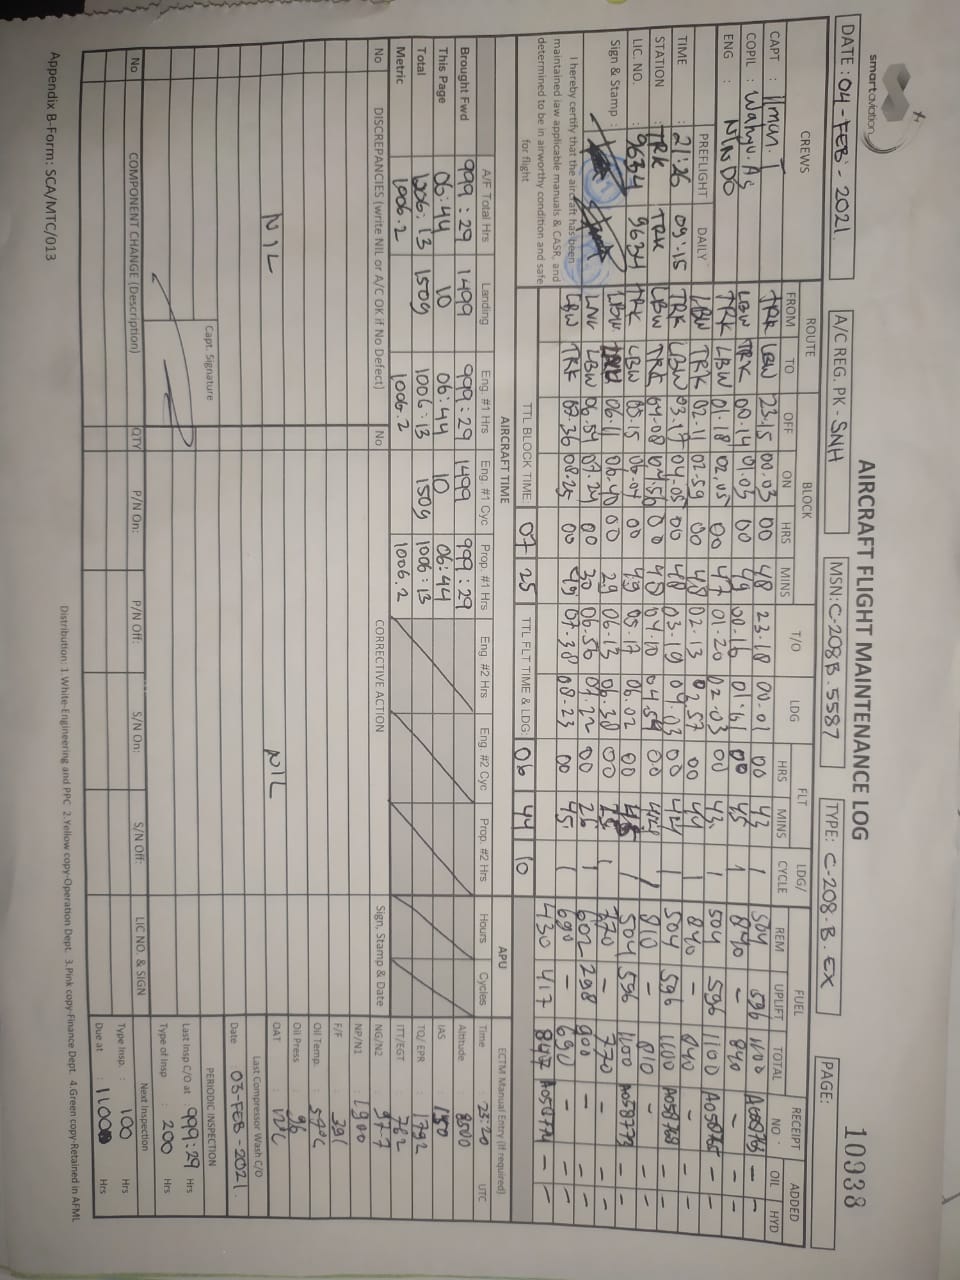 smartaviation
AIRCRAFT FLIGHT MAINTENANCE LOG
10938
DATE : 04-FEB-2021.
A/C REG. PK - SNH
MSN: C-208B.5587
TYPE: C-208.B.EX
PAGE:
CREWS ROUTE BLOCK FLT LDG/ CYCLE FUEL RECEIPT NO ADDED
FROM TO OFF ON HRS MINS T/O LDG HRS MINS REM UPLIFT TOTAL OIL HYD
CAPT : Ilman. T
COPIL : Wahyu. Ag
ENG : NANDO
PREFLIGHT DAILY
TIME : 21:26 09:15
STATION : TRK TRK
LIC. NO. : 9634 9634
Sign & Stamp :
I hereby certify that the aircraft has been
maintained law applicable manuals & CASR, and
determined to be in airworthy condition and safe
for flight
TRK LBW 23.15 00.03 00 48 23.18 00.01 00 43 1 504 596 1100 — —
LBW TRK 00.14 01.03 00 49 00.16 01.01 00 45 1 840 – 840 – — —
TRK LBW 01.18 02.05 00 47 01.20 02.03 00 43 1 504 596 1100 — —
LBW TRK 02.11 02.59 00 48 02.13 02.57 00 44 1 840 – 840 – — —
TRK LBW 03.17 04.05 00 48 03.19 04.03 00 44 1 504 596 1100 A058768 — —
LBW TRK 04.08 04.56 00 48 04.10 04.54 00 44 1 810 – 810 – — —
TRK LBW 05.15 06.04 00 49 05.17 06.02 00 45 1 504 596 1100 A058773 — —
LBW 06.11 06.40 00 29 06.13 06.38 00 25 1 770 – 770 – — —
LBW 06.54 07.24 00 30 06.56 07.22 00 26 1 602 298 900 – — —
LBW TRK 07.36 08.25 00 49 07.38 08.23 00 45 1 690 – 690 – — —
430 417 847 — —
TTL BLOCK TIME: 07 25 TTL FLT TIME & LDG: 06 44 10
AIRCRAFT TIME APU ECTM Manual Entry (If required)
A/F Total Hrs Landing Eng. #1 Hrs Eng. #1 Cyc Prop. #1 Hrs Eng #2 Hrs Eng. #2 Cyc Prop. #2 Hrs Hours Cycles Time 23:20 UTC
Brought Fwd 999:29 1499 999:29 1499 999:29 Altitude : 8500
This Page 06:44 10 06:44 10 06:44 IAS : 150
Total 1006:13 1509 1006:13 1509 1006:13 TQ/ EPR : 1792
Metric 1006.2 1006.2 1006.2 ITT/EGT : 762
No DISCREPANCIES (write NIL or A/C OK if No Defect) No CORRECTIVE ACTION Sign, Stamp & Date NG/N2 : 97.7
NP/N1 : 1900
F/F : 391
Oil Temp. : 57°C
Oil Press : 96
OAT : 12°C
NIL NIL
Last Compressor Wash C/O
Date : 03-FEB-2021.
Capt. Signature
PERIODIC INSPECTION
Last Insp C/O at : 999:29 Hrs
Type of Insp : 200 Hrs
No COMPONENT CHANGE (Description) QTY P/N On: P/N Off: S/N On: S/N Off: LIC NO. & SIGN Next Inspection
Type Insp. : 100 Hrs
Due at : 1100 Hrs
Distribution: 1.White-Engineering and PPC 2.Yellow copy-Operation Dept. 3.Pink copy-Finance Dept 4.Green copy-Retained in AFML
Appendix B-Form: SCA/MTC/013